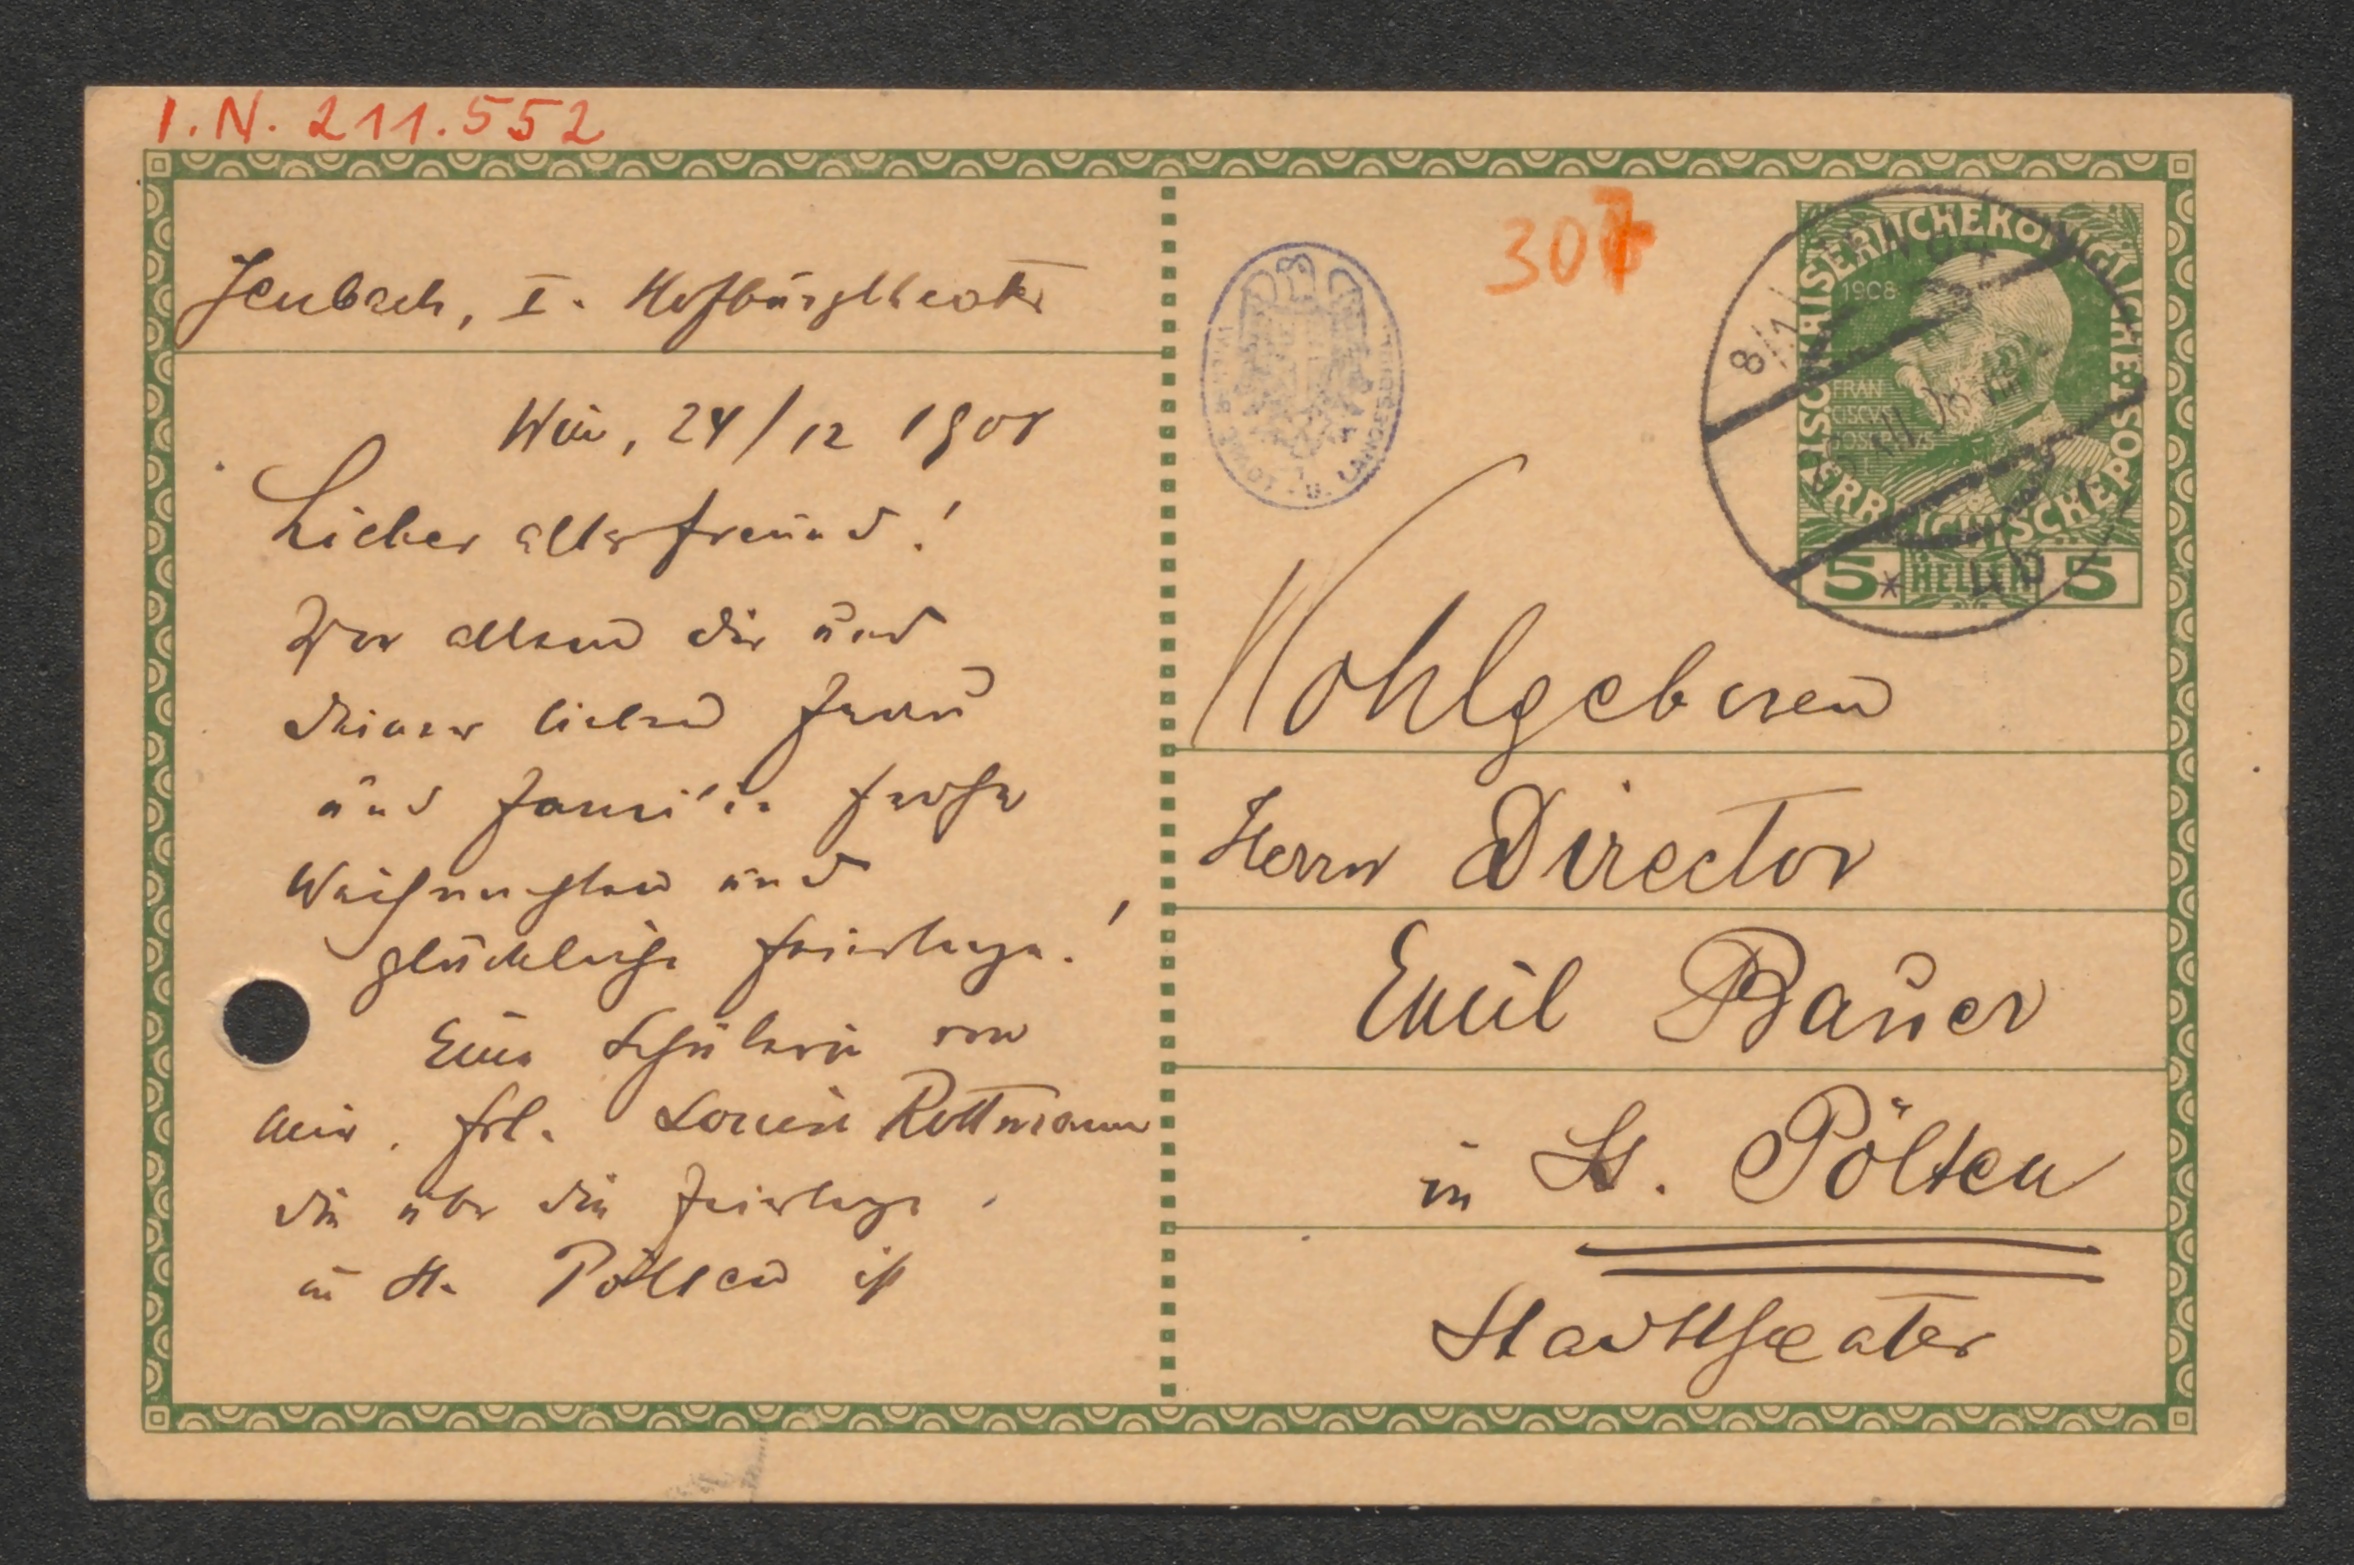 I.N. 211.552
Jenbach, I. Hofburgtheater
Wien, 24/12 1908
Lieber alter Freund!
Vor allem dir und
deiner lieben Frau
und Familie frohe
Weihnachten und
glückliche Feiertage!
Eine Schülerin von
mir, Frl. Louise Rottmann
die über die Feiertage
in St. Pölten ist
307
KAISERLICHE KÖNIGLICHE POST
ÖSTERREICHISCHE
1908
FRAN
CISCVS
IOSEPHVS
5 HELLER 5
8/1
Wohlgeboren
Herrn Director
Emil Bauer
in St. Pölten
Stadttheater